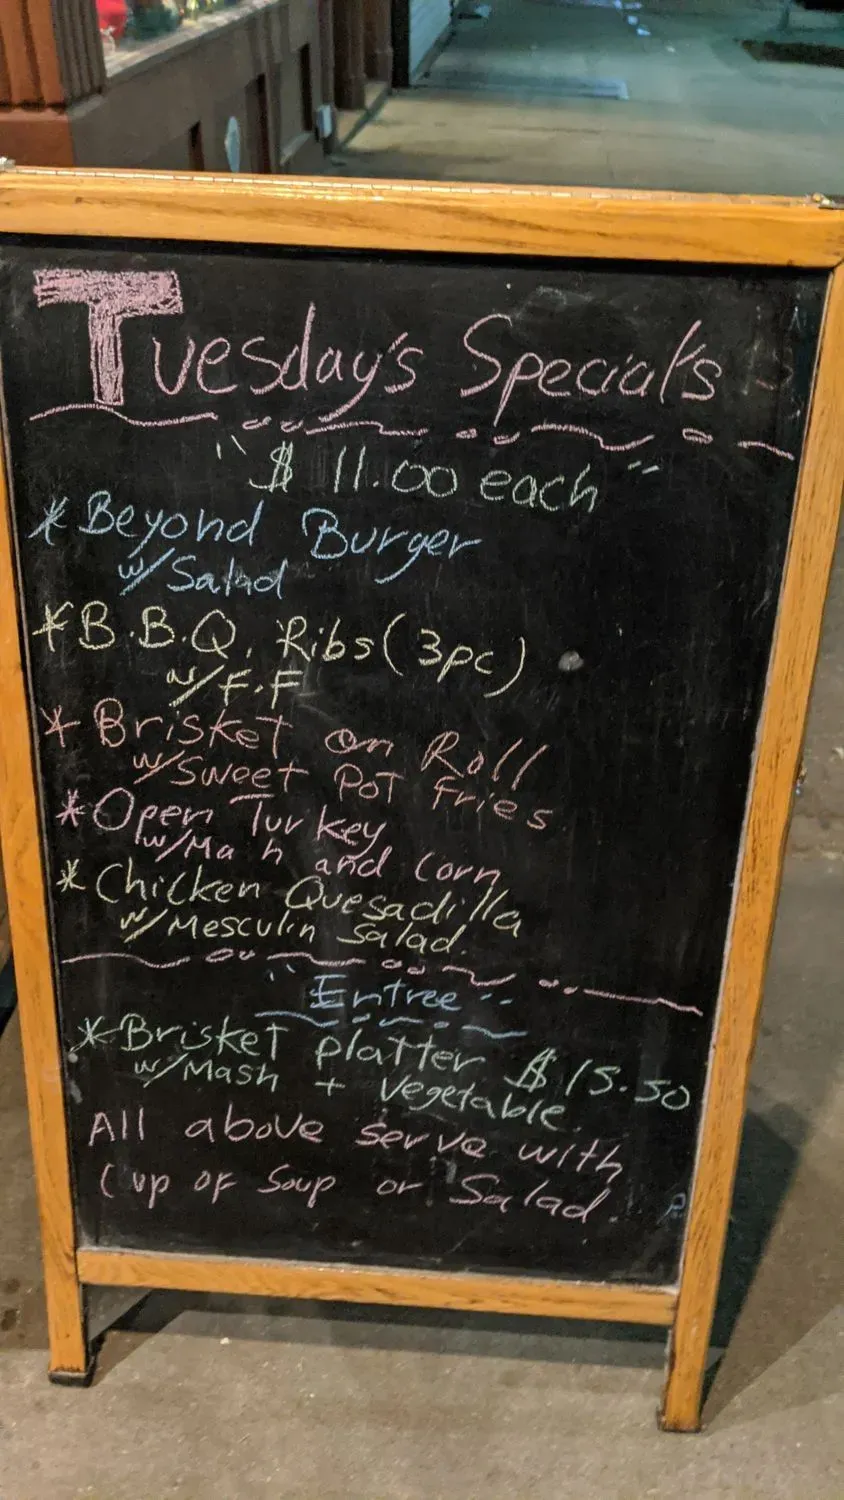 Tuesday's Special's
"$ 11.00 each"
* Beyond Burger
w/ Salad
* B.B.Q. Ribs (3pc)
w/ F.F
* Brisket on Roll
w/ Sweet Pot Fries
* Open Turkey
w/ Ma h and Corn
* Chicken Quesadilla
w/ Mesculin Salad.
"Entree"
* Brisket platter $15.50
w/ Mash + Vegetable.
All above serve with
Cup of Soup or Salad.